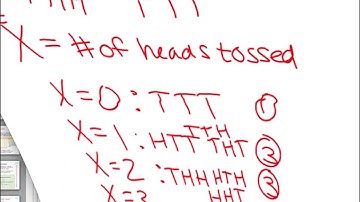 THH TTT
X = # of heads tossed
X=0 : TTT ①
X=1 : HTT THT TTH ③
X=2 : THH HTH HHT ③
X=3